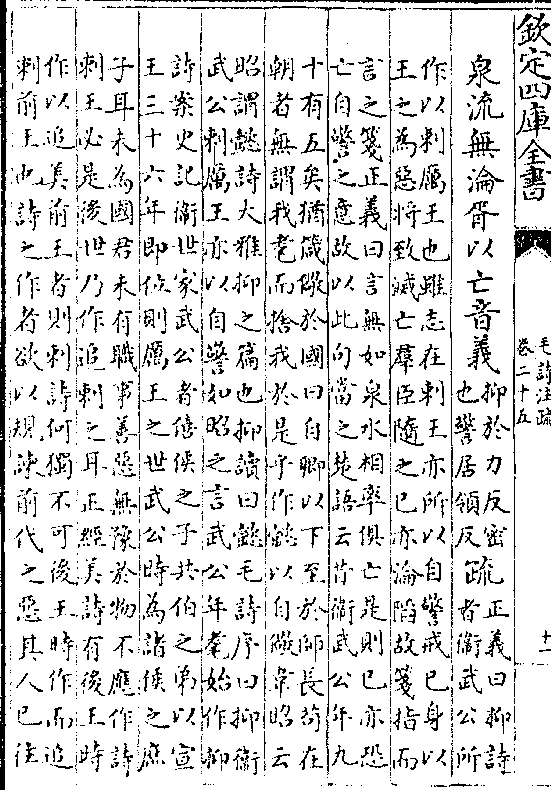 欽定四庫全書
毛詩注疏
卷二十五
十一
泉流無淪胥以亡音義
抑於力反密
也警居領反
疏
正義曰抑詩
者衛武公所
作以刺厲王也雖志在刺王亦所以自警戒已身以
王之為惡將致滅亡羣臣隨之已亦淪陷故箋指而
言之箋正義曰言無如泉水相率俱亡是則已亦恐
亡自警之意故以此句當之楚語云昔衛武公年九
十有五矣猶箴儆於國曰自卿以下至於師長苟在
朝者無謂我耄而捨我於是乎作懿以自儆韋昭云
昭謂懿詩大雅抑之篇也抑讀曰懿毛詩序曰抑衛
武公刺厲王亦以自警如昭之言武公年耄始作抑
詩案史記衛世家武公者僖侯之子共伯之弟以宣
王三十六年即位則厲王之世武公時為諸侯之庶
子耳未為國君未有職事善惡無豫於物不應作詩
刺王必是後世乃作追刺之耳正經美詩有後王時
作以追美前王者則刺詩何獨不可後王時作而追
刺前王也詩之作者欲以規諫前代之惡其人已往